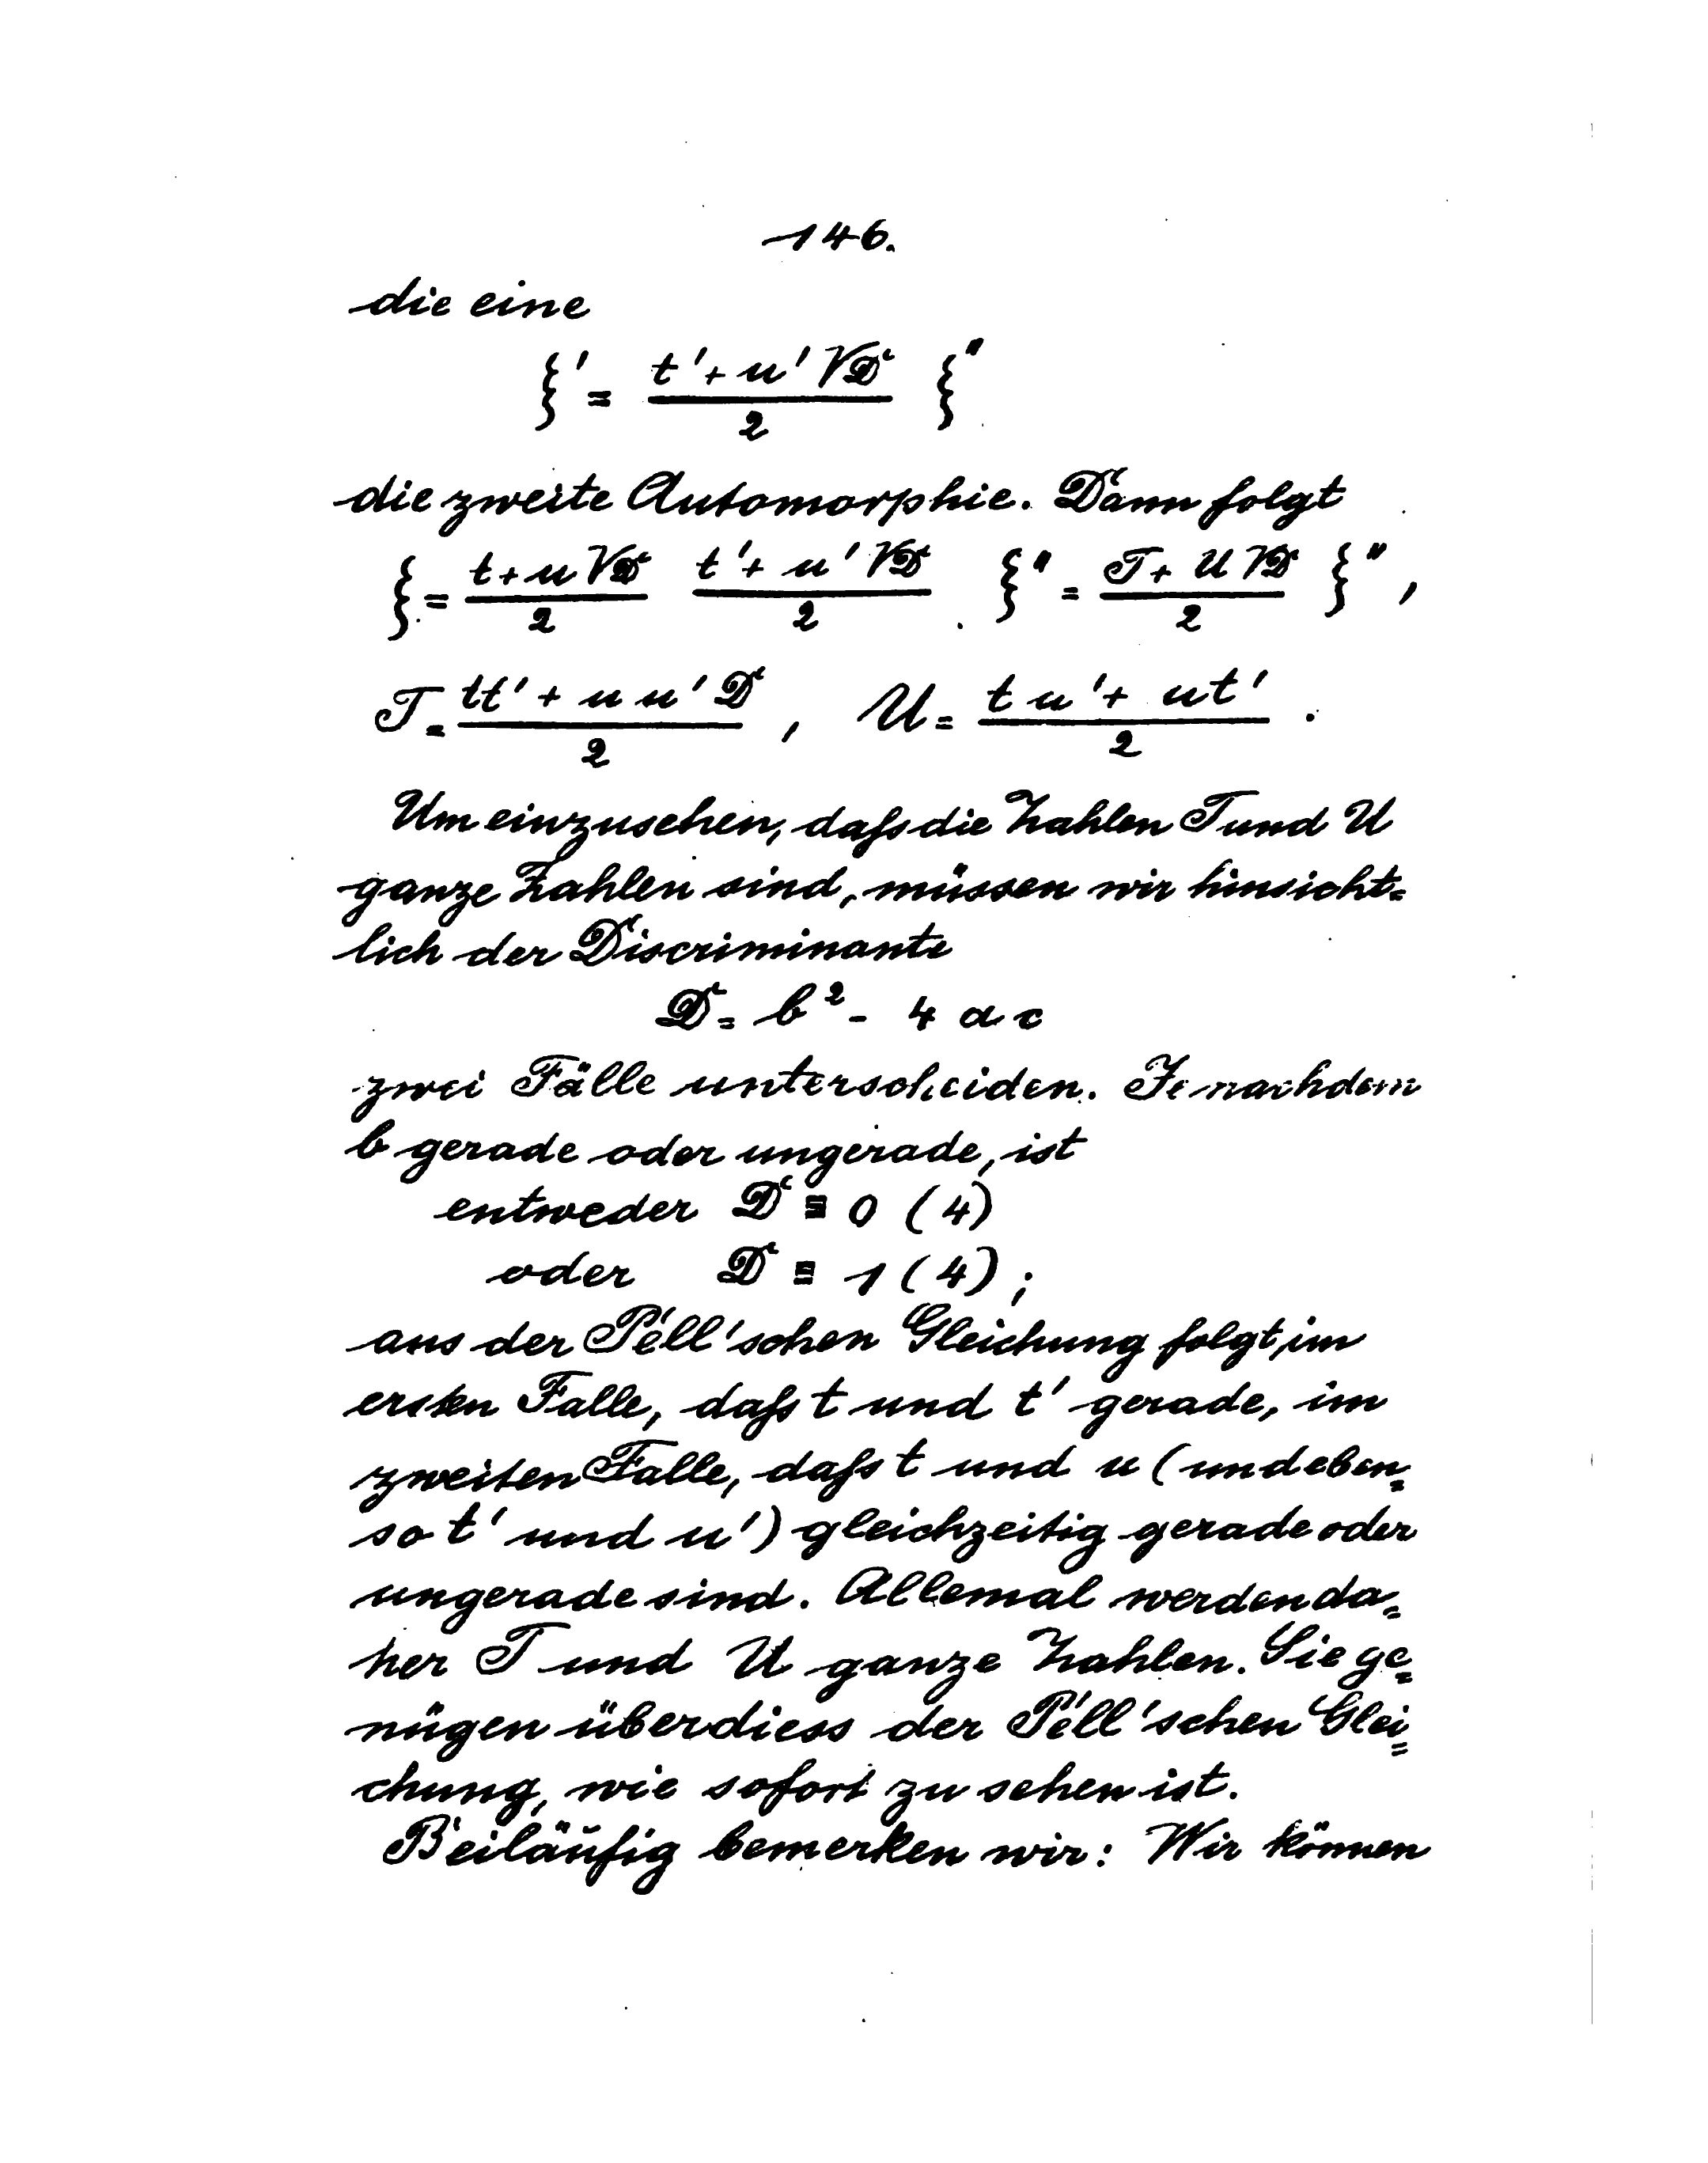 146.
die eine
ξ' = (t' + u'√D)/2 ξ''
die zweite Automorphie. Dann folgt
ξ = (t + u√D)/2 (t' + u'√D)/2 . ξ'' = (T + U√D)/2 ξ'',
T = (tt' + uu'D)/2 , U = (tu' + ut')/2 .
Um einzusehen, daſs die Zahlen T und U
ganze Zahlen sind, müssen wir hinsicht=
lich der Discriminante
D = b² - 4ac
zwei Fälle unterscheiden. Je nachdem
b gerade oder ungerade, ist
entweder D ≡ 0 (4)
oder D ≡ 1 (4) ;
aus der Pell'schen Gleichung folgt, im
ersten Falle, daſs t und t' gerade, im
zweiten Falle, daſs t und u (und eben=
so t' und u') gleichzeitig gerade oder
ungerade sind. Allemal werden da=
her T und U ganze Zahlen. Sie ge=
nügen überdiess der Pell'schen Glei=
chung, wie sofort zu sehen ist.
Beiläufig bemerken wir: Wir können